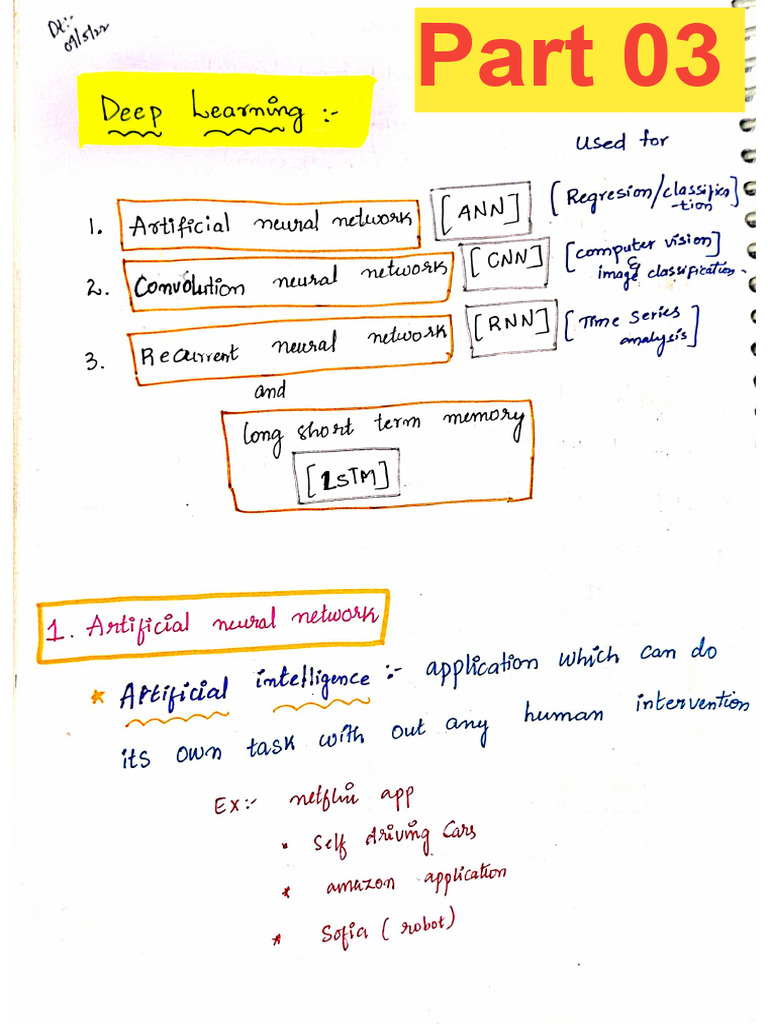 Dt:-
Part 03
Deep Learning :-
used for
1. Artificial neural network [ANN] [Regresion/classifica
-tion]
2. Convolution neural network [CNN] [computer vision]
&
image classification.
3. Recurrent neural network [RNN] [Time Series
analysis]
and
long short term memory
[LSTM]
1. Artificial neural network
* Artificial intelligence :- application which can do
its own task with out any human intervention
Ex:- netflix app
• Self driving Cars
* amazon application
* Sofia (robot)